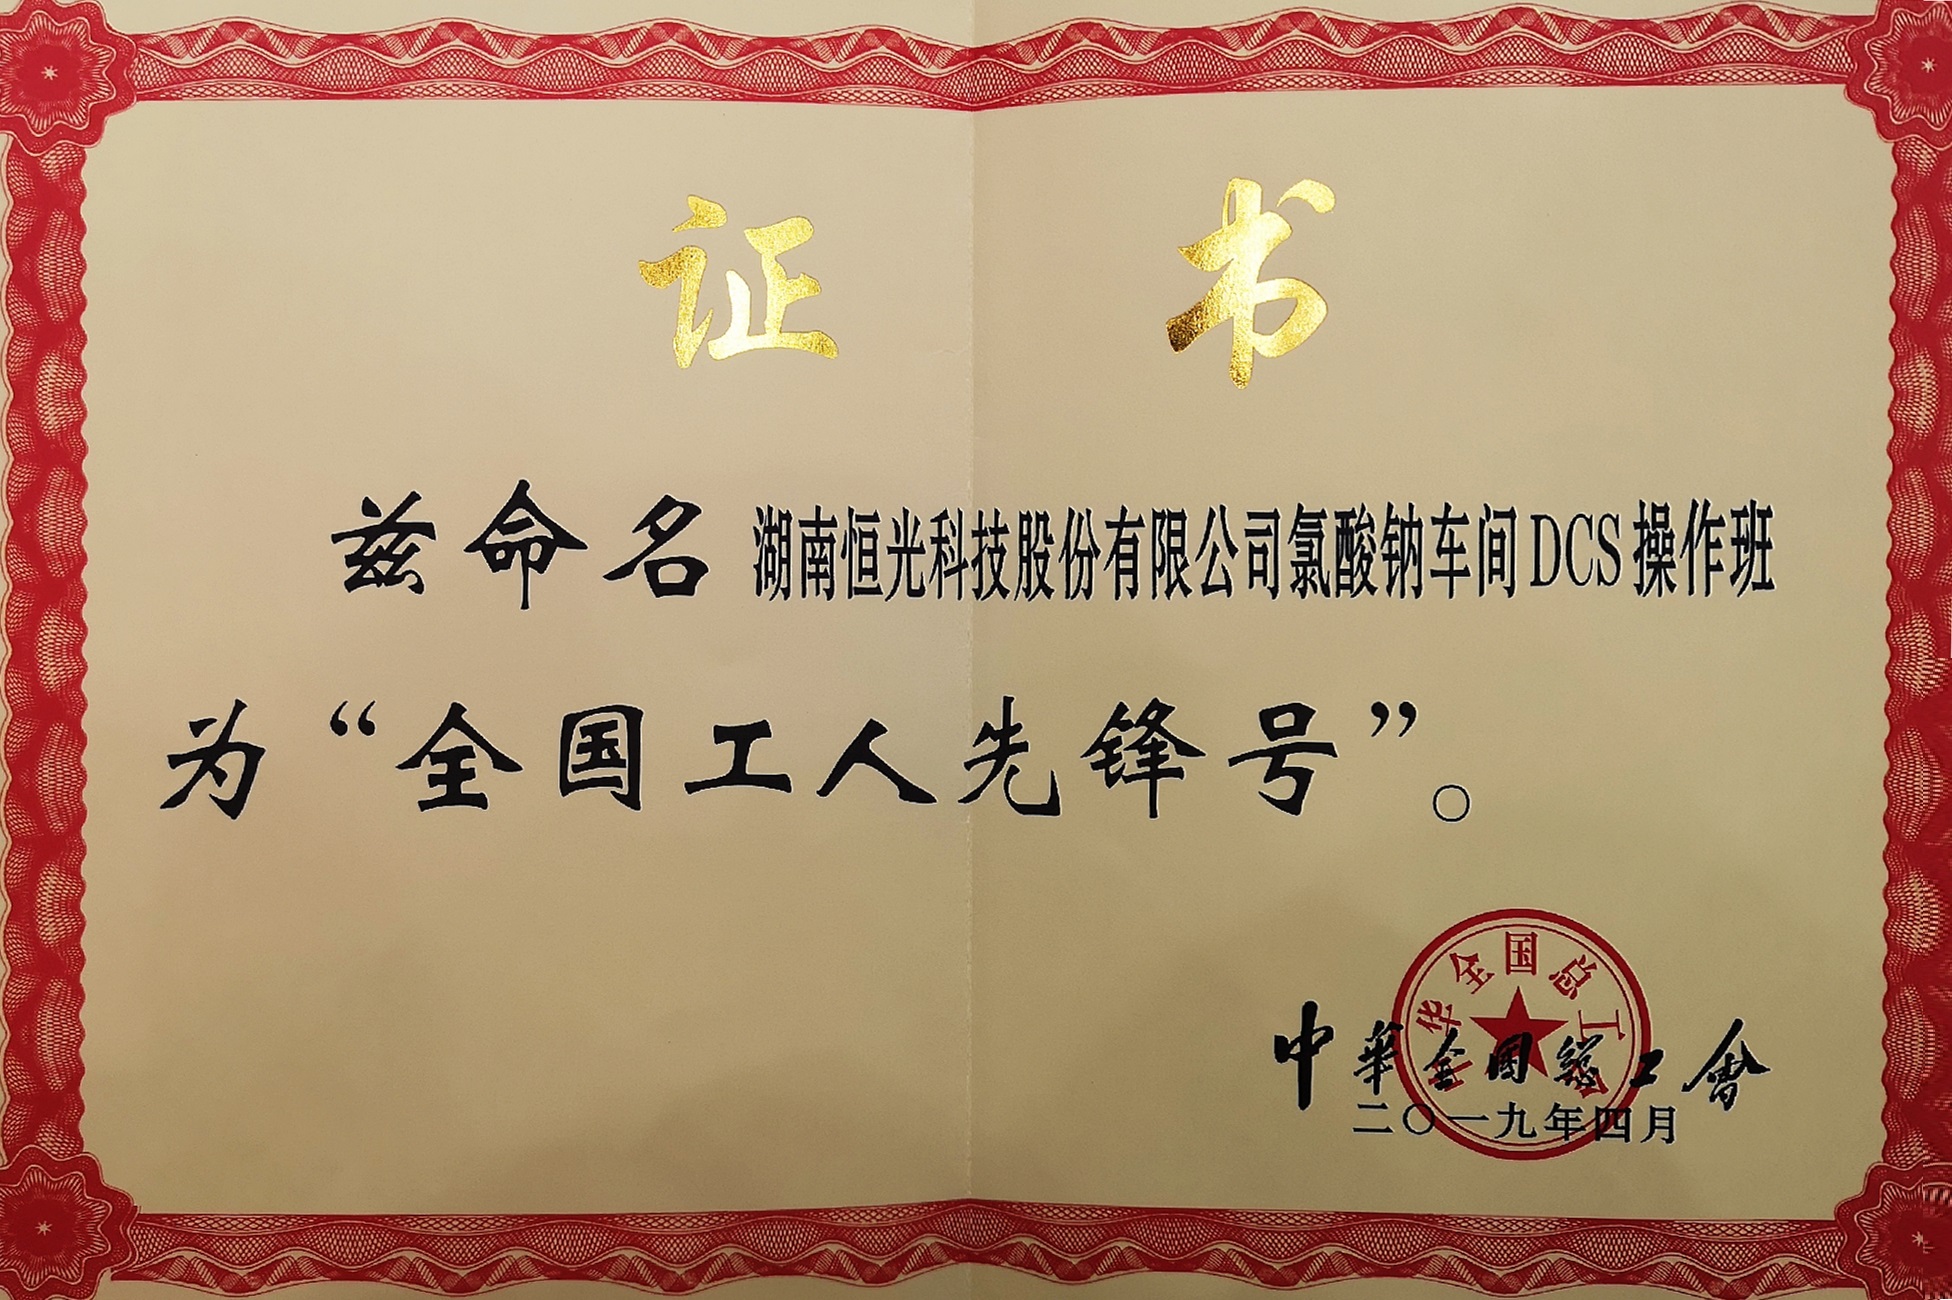 证书
兹命名湖南恒光科技股份有限公司氯酸钠车间DCS操作班
为“全国工人先锋号”。
华全国总工
中華全国總工會
二〇一九年四月